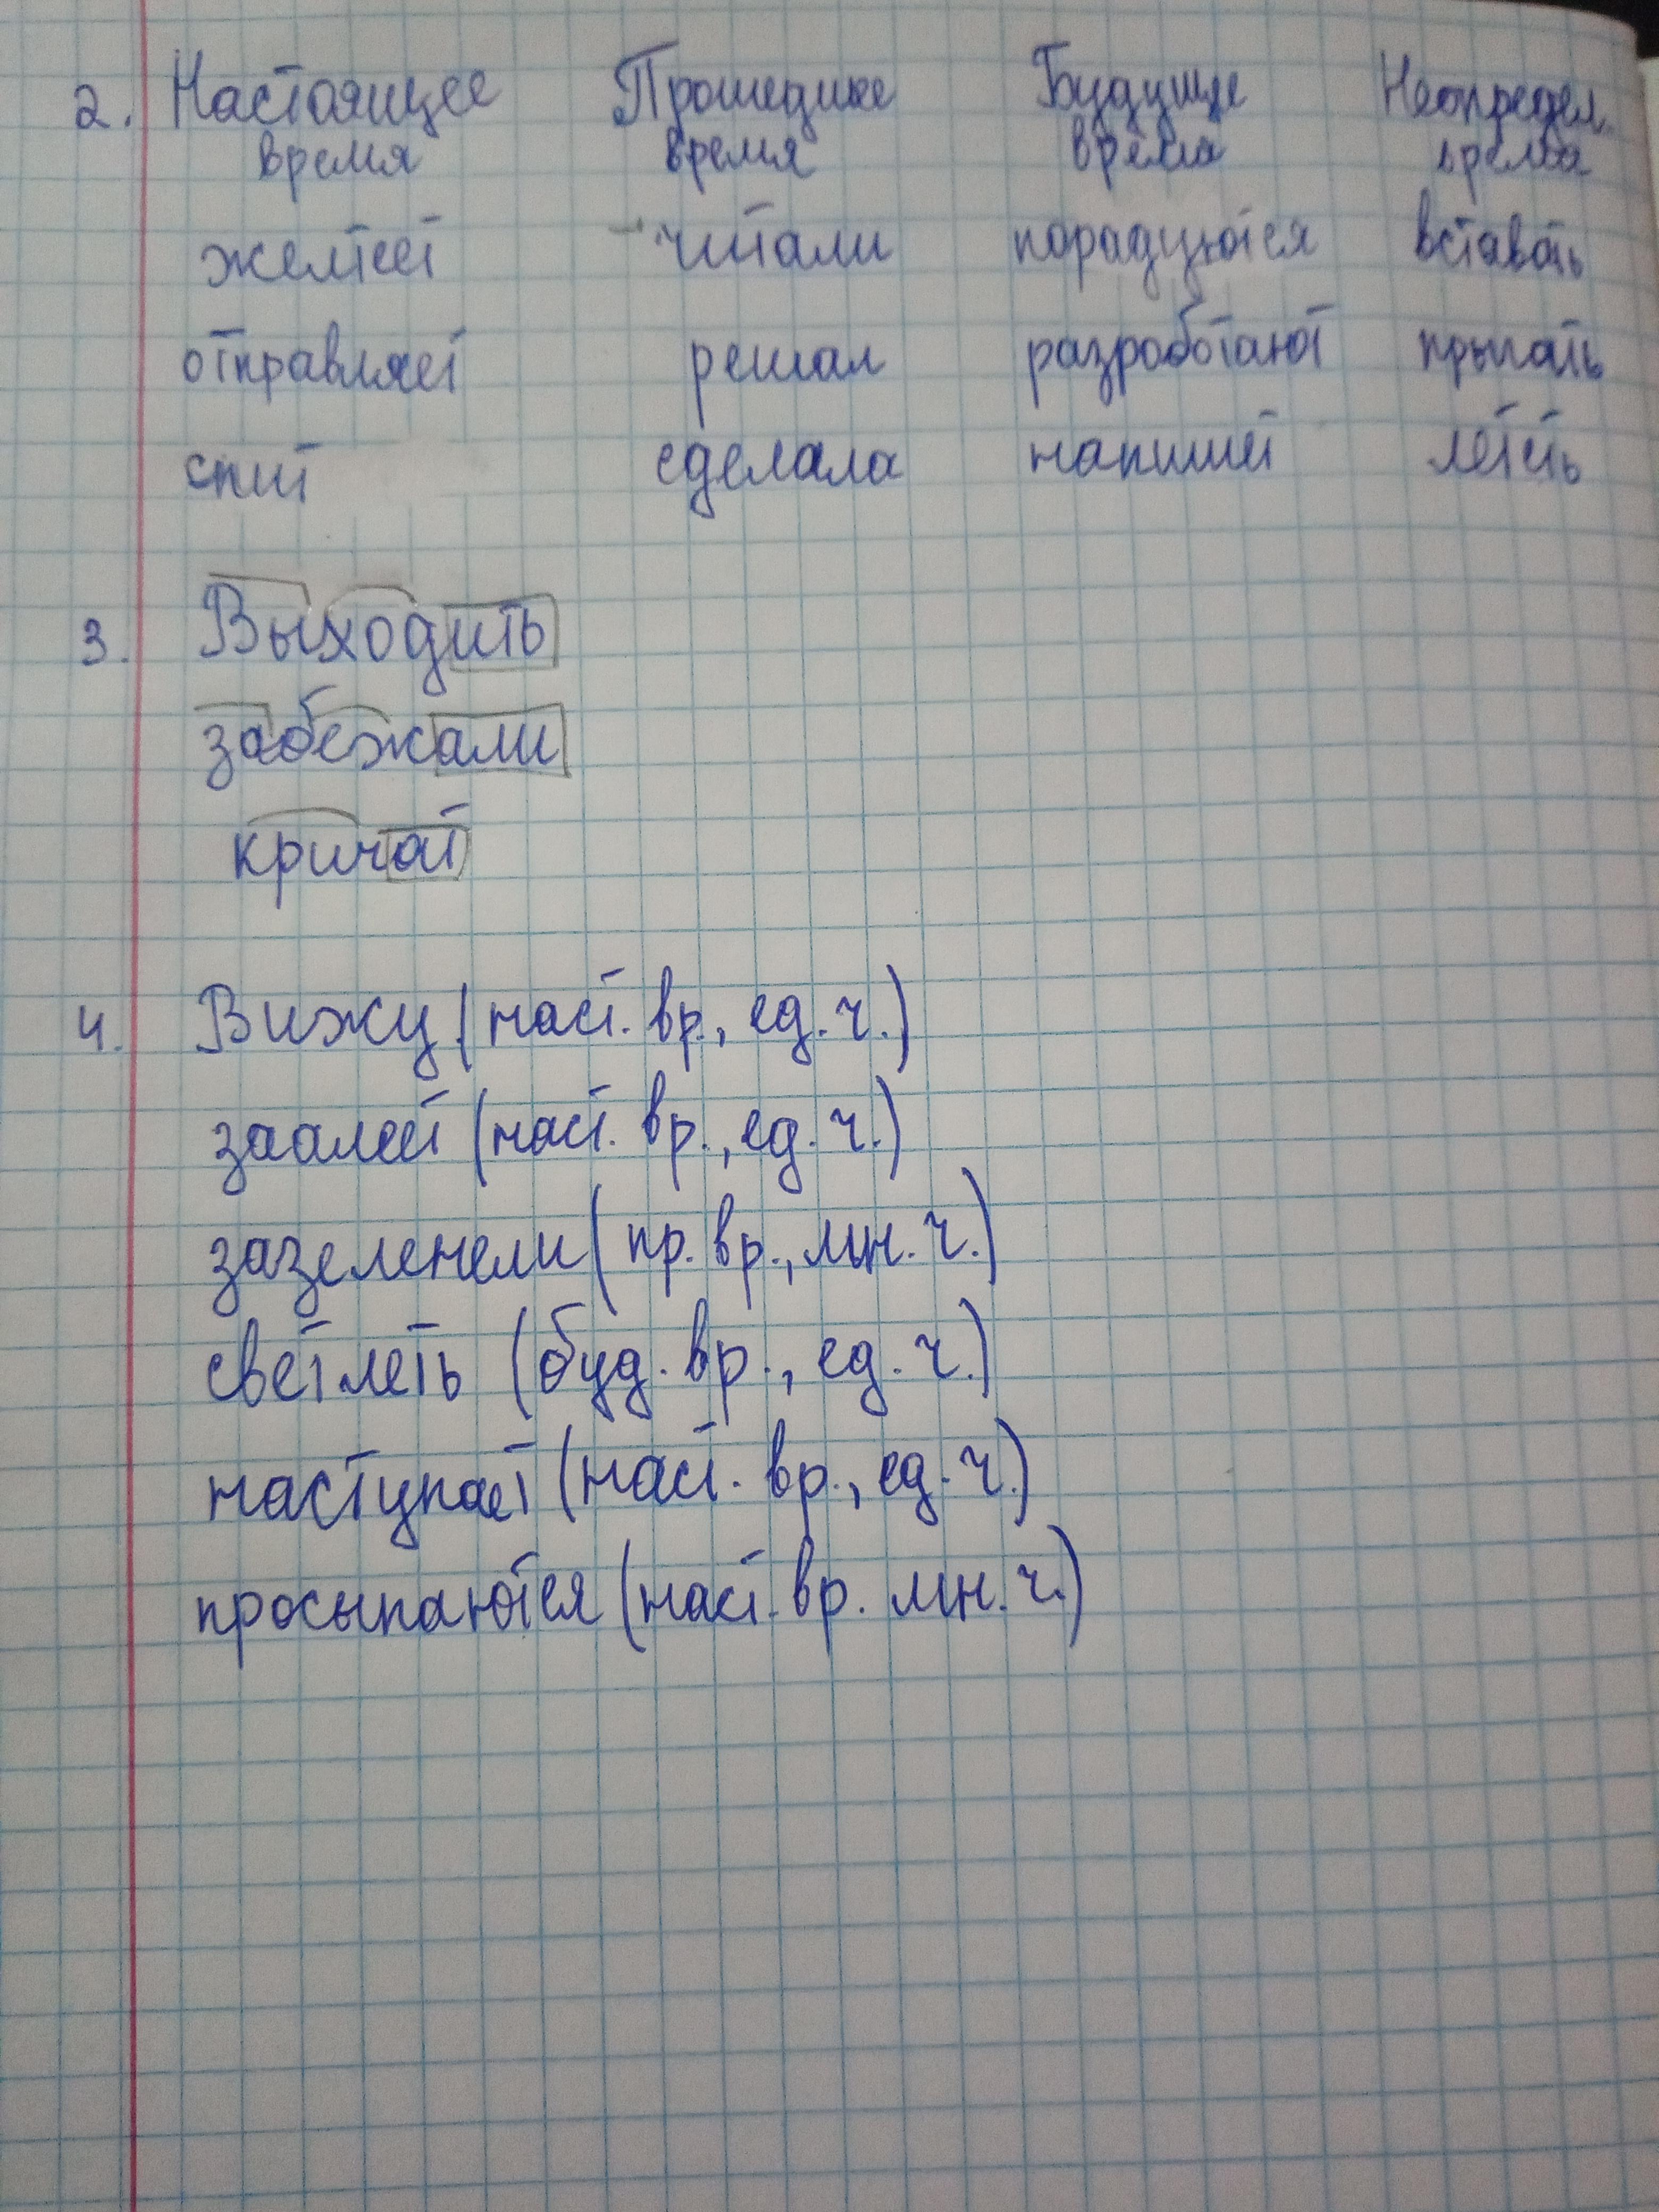 2. Настоящее Прошедшее Будуще Неопредел.
время время время время
желтеет читали порадуются вставать
отправляет решал разработают прыгать
спит сделала напишет лететь
3. Выходить
забежали
кричат
4. Вижу (наст. вр., ед. ч.)
заалеет (наст. вр., ед. ч.)
зазеленели (пр. вр., мн. ч.)
светлеть (буд. вр., ед. ч.)
наступает (наст. вр., ед. ч.)
просыпаются (наст. вр. мн. ч.)